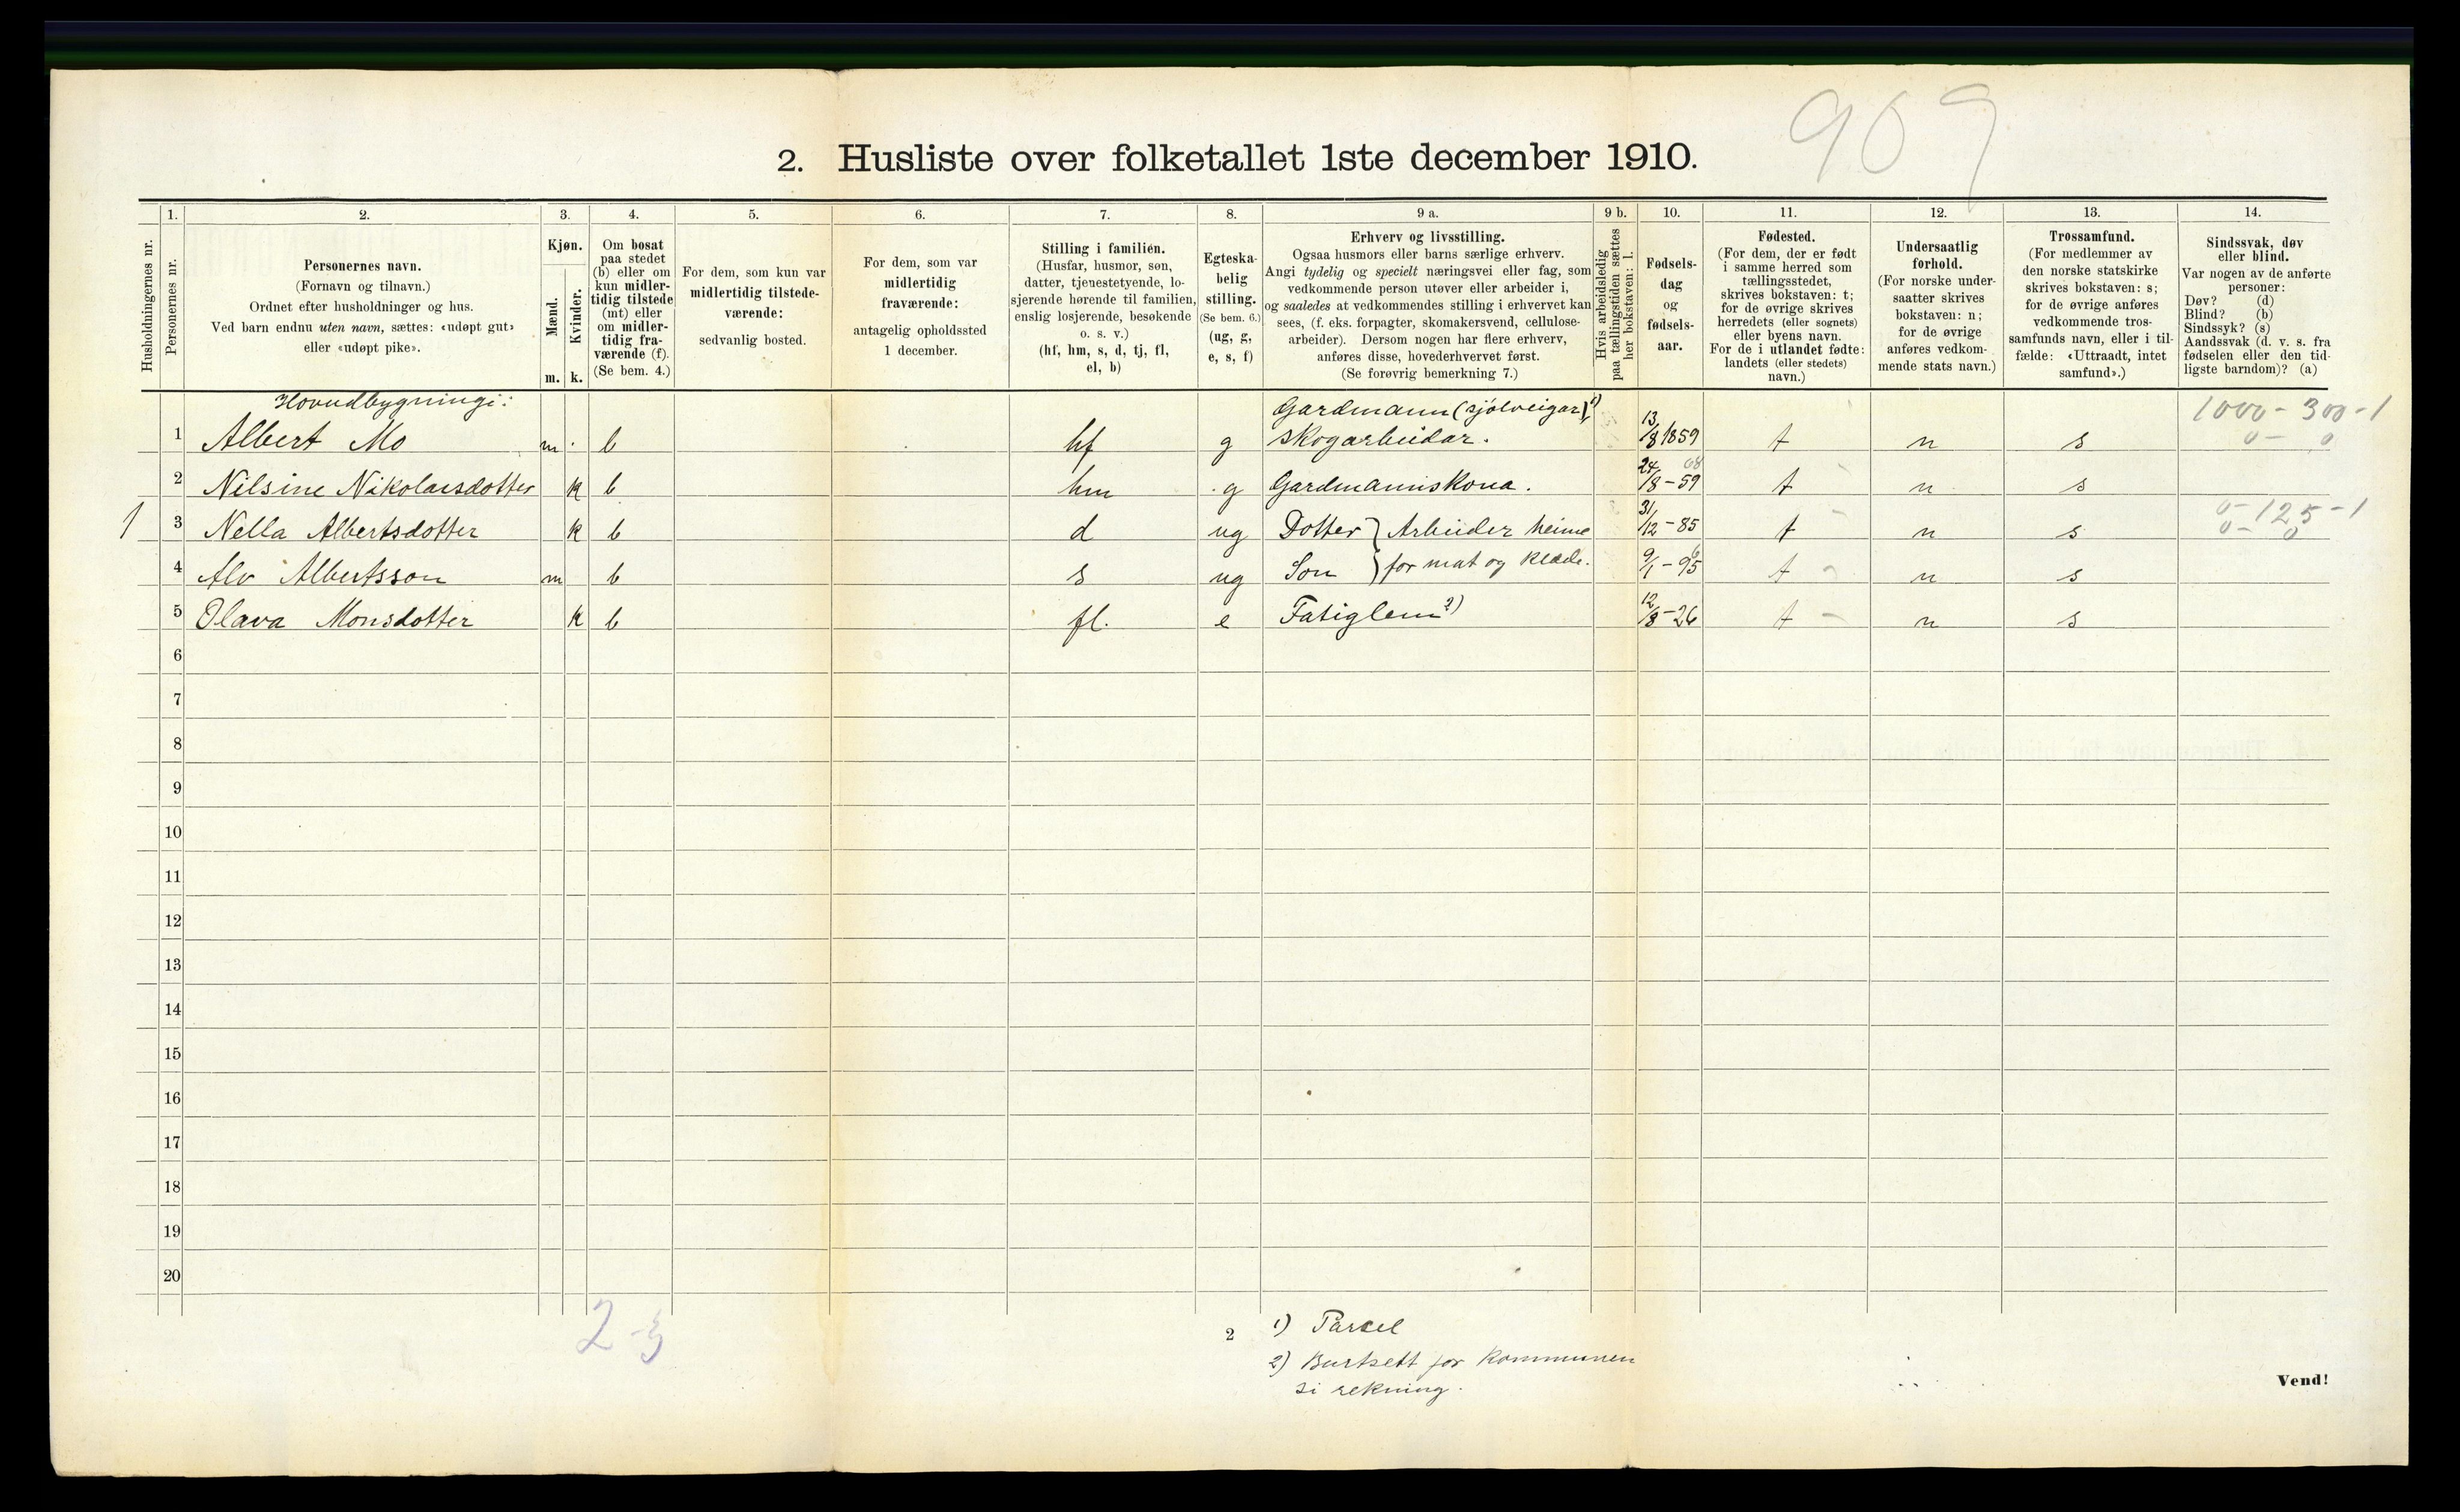 909
2. Husliste over folketallet 1ste december 1910.
Husholdningernes nr.
1. Personernes nr.
2. Personernes navn.
(Fornavn og tilnavn.)
Ordnet efter husholdninger og hus.
Ved barn endnu uten navn, sættes: «udøpt gut»
eller «udøpt pike».
3. Kjøn.
Mænd. m.
Kvinder. k.
4. Om bosat
paa stedet
(b) eller om
kun midler-
tidig tilstede
(mt) eller
om midler-
tidig fra-
værende (f).
(Se bem. 4.)
5. For dem, som kun var
midlertidig tilstede-
værende:
sedvanlig bosted.
6. For dem, som var
midlertidig
fraværende:
antagelig opholdssted
1 december.
7. Stilling i familien.
(Husfar, husmor, søn,
datter, tjenestetyende, lo-
sjerende hørende til familien,
enslig losjerende, besøkende
o. s. v.)
(hf, hm, s, d, tj, fl,
el, b)
8. Egteska-
belig
stilling.
(Se bem. 6.)
(ug, g,
e, s, f)
9 a. Erhverv og livsstilling.
Ogsaa husmors eller barns særlige erhverv.
Angi tydelig og specielt næringsvei eller fag, som
vedkommende person utøver eller arbeider i,
og saaledes at vedkommendes stilling i erhvervet kan
sees, (f. eks. forpagter, skomakersvend, cellulose-
arbeider). Dersom nogen har flere erhverv,
anføres disse, hovederhvervet først.
(Se forøvrig bemerkning 7.)
9 b. Hvis arbeidsledig
paa tællingstiden sættes
her bokstaven: l.
10. Fødsels-
dag
og
fødsels-
aar.
11. Fødested.
(For dem, der er født
i samme herred som
tællingsstedet,
skrives bokstaven: t;
for de øvrige skrives
herredets (eller sognets)
eller byens navn.
For de i utlandet fødte:
landets (eller stedets)
navn.)
12. Undersaatlig
forhold.
(For norske under-
saatter skrives
bokstaven: n;
for de øvrige
anføres vedkom-
mende stats navn.)
13. Trossamfund.
(For medlemmer av
den norske statskirke
skrives bokstaven: s;
for de øvrige anføres
vedkommende tros-
samfunds navn, eller i til-
fælde: «Uttraadt, intet
samfund».)
14. Sindssvak, døv
eller blind.
Var nogen av de anførte
personer:
Døv? (d)
Blind? (b)
Sindssyk? (s)
Aandssvak (d. v. s. fra
fødselen eller den tid-
ligste barndom)? (a)
Hovudbygningi: Gardmann (sjølveigar)1), 1000 - 300 - 1
1 Albert Mo m b hf g skogarbeidar. 13/8 1859 t n s 0 - 0
2 Nilsine Nikolaisdotter k b hm g Gardmannskona. 24/8 - 59 t n s
1 3 Nella Albertsdotter k b d ug Dotter } Arbeider heime 31/12 - 85 t n s 0 - 125 - 1 0 - 0
4 Alv Albertsson m b s ug Son } for mat og klæde. 9/1 - 95 t n s
5 Olava Monsdotter k b fl. e Fatiglem 2) 12/8 - 26 t n s
6
7
8
9
10
11
12
13
14
15
16
17
18
19
20
2-3
2
1) Parsel
2) Burtsett for kommunen
si rekning.
Vend!